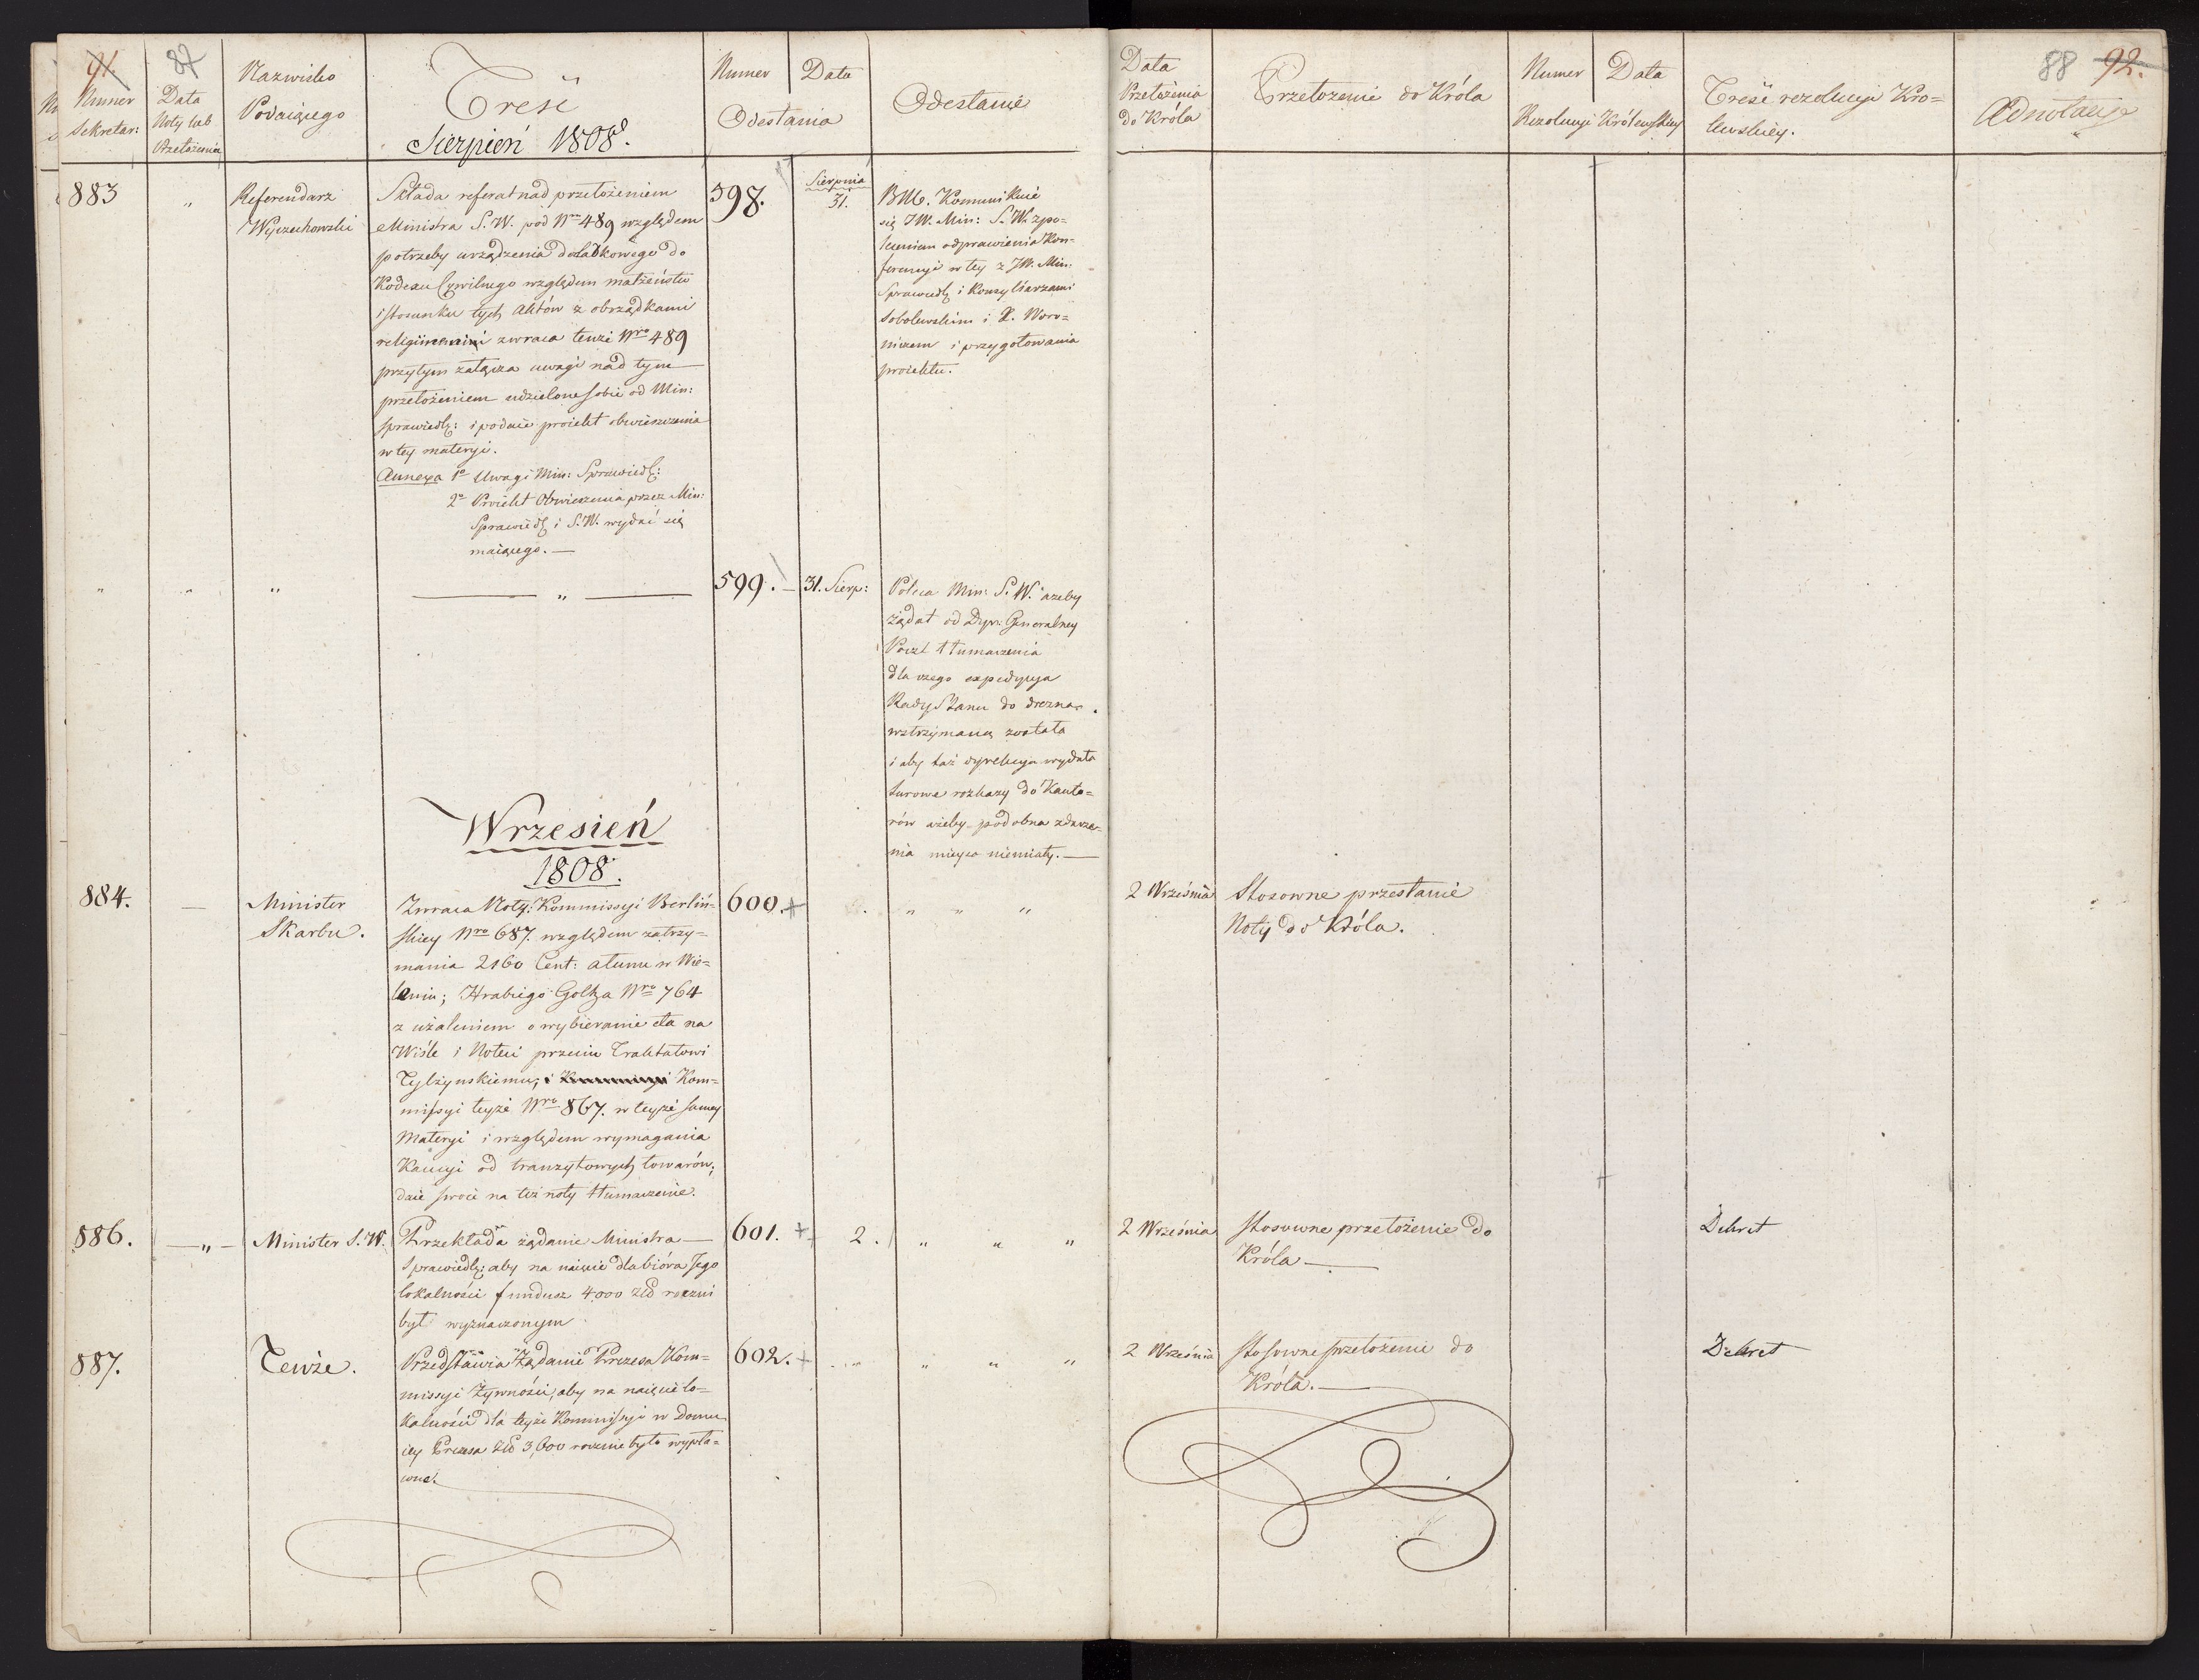 91 87
Numer Sekretar:
Data Noty lub Przełożenia
Nazwisko Podaiącego
Treść
Sierpień 1808.
Numer Data
Odesłania
Odesłanie
Data Przełożenia do Króla
Przełożenie do Króla
Numer Data
Rezolucyi Królewskiey
Treść rezolucyi Kro=
lewskiey.
88 92.
Adnotacye
883 „ Referendarz
Wyczechowski
Składa referat nad przełożeniem
Ministra S. W. pod Nro 489 względem
potrzeby urządzenia dodatkowego do
Kodexu Cywilnego względem małżeństw
i stosunku tych Aktów z obrządkami
religiinemi zwraca tenże Nro 489
przytym załącza uwagi nad tym
przełożeniem udzielone sobie od Min:
Sprawiedl: i podaie proiekt obwieszczenia
w tey materyi.
Annexa 1o Uwagi Min: Sprawiedl:
2o Proiekt Obwieszczenia przez Min:
Sprawiedl i S.W. wydać się
maiącego. —
598. Sierpnia
31.
Kommunikuie
się JW. Min: S. W. z po=
leceniem odprawienia Kon=
ferencyi w tey z JW. Min.
Sprawiedl i Konsyliarzami
Sobolewskim i X. Woro=
niczem i przygotowania
proiektu.
„ „ „ — „ — 599. — 31. Sierp:
Poleca Min: S. W. ażeby
żądał od Dyr: Generalney
Poczt tłumaczenia
dla czego expedycya
Rady Stanu do Drezna
wstrzymaną została
i aby taż dyrekcya wydała
surowe rozkazy do Kanto=
rów ażeby podobne zdarze=
nia mieysca niemiały. —
Wrzesień
1808.
884. — Minister
Skarbu.
Zwraca Noty: Kommissyi Berliń=
skiey Nro 687. względem zatrzy=
mania 2160 Cent: ałunu w Wie=
leniu; Hrabiego Goltza Nro 764
z użaleniem o wybieranie cła na
Wiśle i Noteci przeciw Traktatowi
Tylżynskiemu; i Kom=
missyi teyże Nro 867. w teyże samey
Materyi i względem wymagania
Kaucyi od tranzytowych towarów;
daie swoie na też noty tłumaczenie.
600. + „ „ „
2 Września Stosowne przesłanie
Noty do Króla.
886. — „ — Minister S. W.
Przekłada żądanie Ministra —
Sprawiedl: aby na naięcie dla bióra Jego
lokalności fundusz 4000 złd roczni
był wyznaczonym
601. + 2. „ „ „
2 Września Stosowne przełożenie do
Króla —
Dekret
887. Tenże.
Przedstawia Żądanie Prezesa Kom=
missyi Żywności, aby na naięcie lo=
kalności dla teyże Kommissyi w Domu
iey Prezesa złd 3,600 rocznie było wypła=
cone.
602. + „ „ „
2 Września Stosowne przełożenie do
Króla. —
Dekret